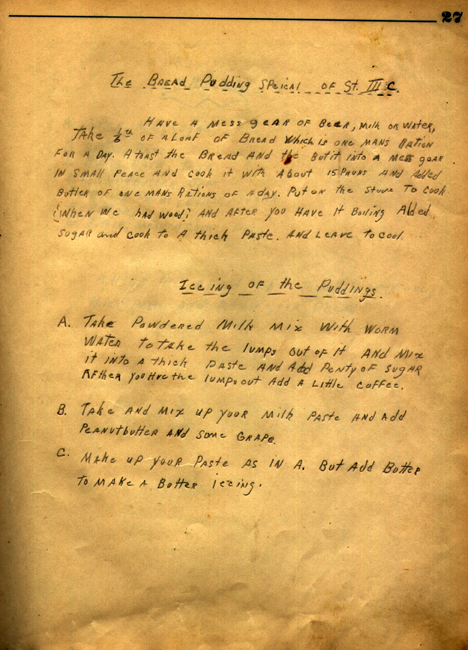 27
The Bread Pudding Speical of St. III C.
Have a mess gear of Beer, milk or water,
Take 1/6th of a Loaf of Bread which is one mans Ration
For a Day. Atoast the Bread and the But it into a mess gear
in small Peace and cook it with about 15 Pours and Added
Butter of one mans Rations of a day. Put on the stove to cook
(When we had wood) and after you Have it Boiling Added
sugar and cook to a thich Paste. And Leave to cool.
Iceing of the Puddings.
A. Take Powdered Milk mix with worm
water to take the lumps out of it and mix
it into a thich Paste and Add Penty of sugar
After you Have the lumps out add a little coffee.
B. Take and mix up your milk Paste and add
Peanutbutter and some Grape.
C. Make up your Paste as in A. But add Butter
to make a Butter iceing.